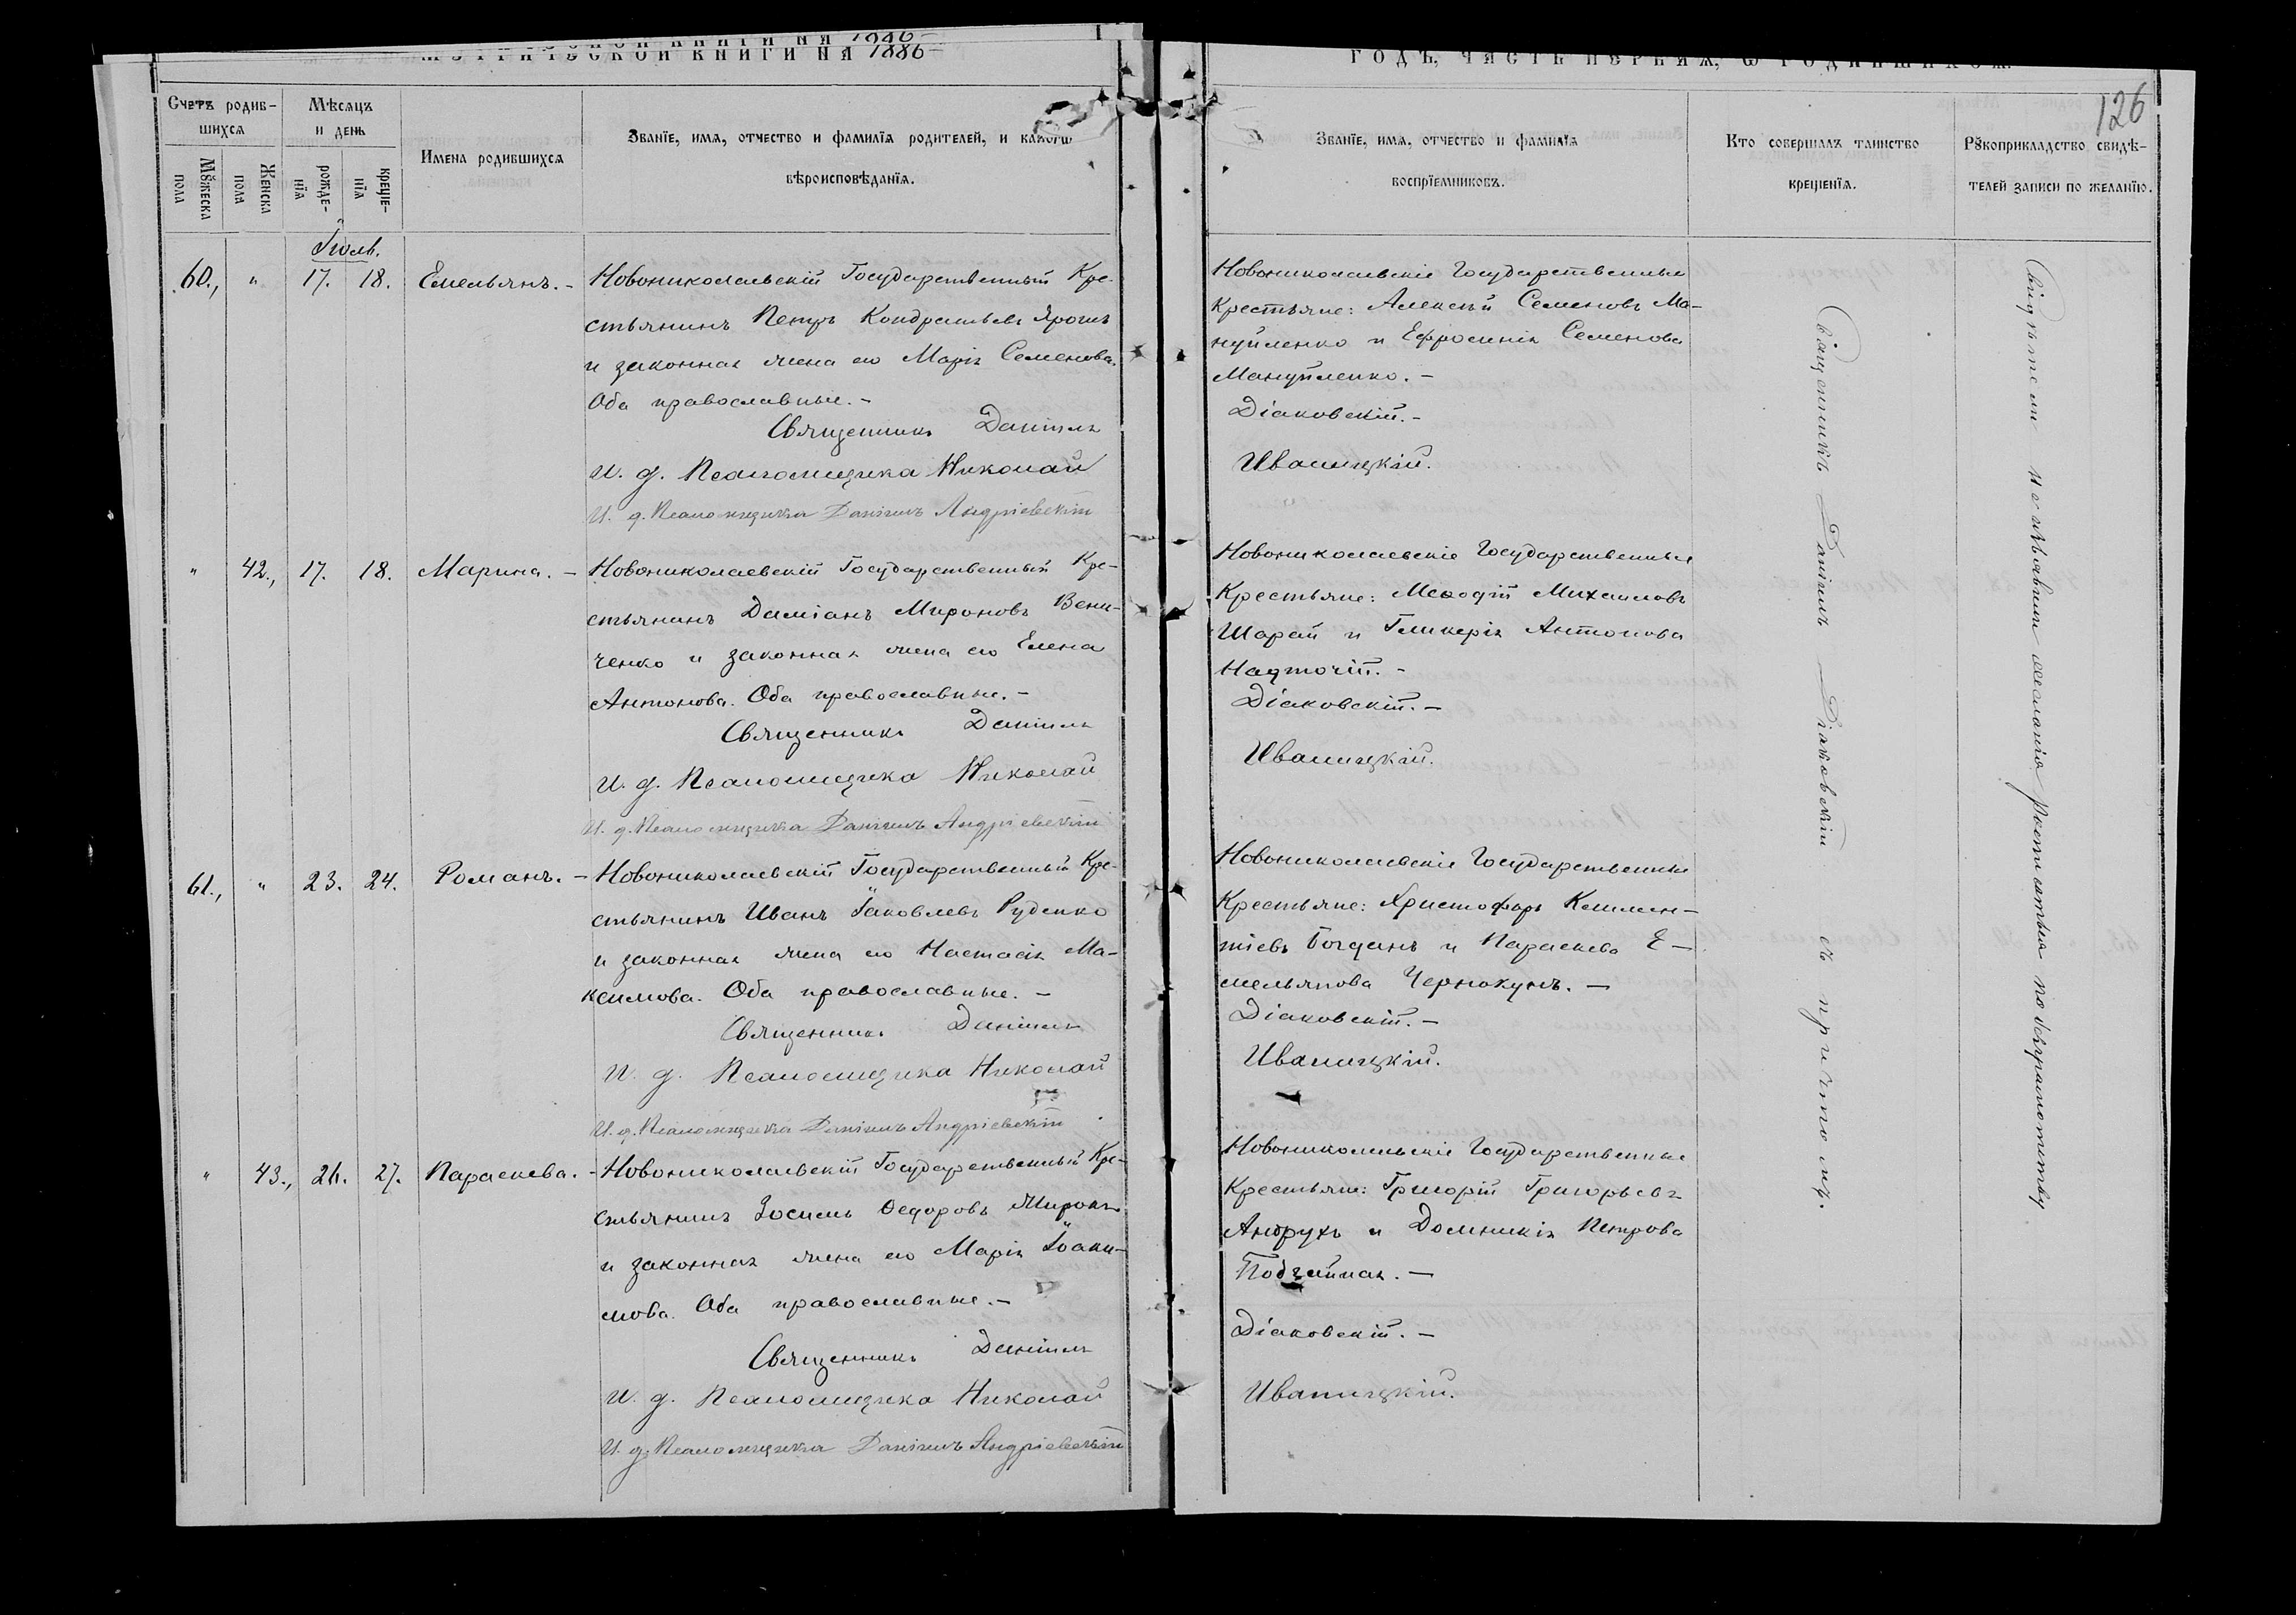 МЕТРИЧЕСКОЙ КНИГИ НА 1886
ГОДЪ, ЧАСТЬ ПЕРВАЯ, Ѡ РОДИВШИХСЯ.
126
Счетъ родив-
шихся
Мѣсяцъ
и день
Имена родившихся
Званїе, имя, отчество и фамилїя родителей, и какогѡ
вѣроисповѣданїя.
Мꙋжеска
пола
Женска
пола
рожде-
нїя
креще-
нїя
Званїе, имя, отчество и фамилїя
воспрїемниковъ.
Кто совершалъ таинство
крещенїя.
Рꙋкоприкладство свидѣ-
телей записи по желанїю.
Іюль.
60., " 17. 18. Емельянъ. - Новониколаевскій Государственный Кре-
стьянинъ Петръ Кондратьевъ Ярошъ
и законная жена его Марія Семенова.
Оба православные. -
Священникъ Даніилъ
И. д. Псаломщика Николай
И. д. Псаломщика Даніилъ Андріевскій
Новониколаевскіе Государственные
Крестьяне: Алексѣй Семеновъ Ма-
нуйленко и Ефросинія Семенова
Мануйленко. -
Діаковскій. -
Иваницкій.
" 42., 17. 18. Марина. - Новониколаевскій Государственный Кре-
стьянинъ Даміанъ Мироновъ Вени-
ченко и законная жена его Елена
Антонова. Оба православные. -
Священникъ Даніилъ
И. д. Псаломщика Николай
И. д. Псаломщика Даніилъ Андріевскій
Новониколаевскіе Государственные
Крестьяне: Меѳодій Михаиловъ
Шарай и Гликерія Антонова
Надточій. -
Діаковскій. -
Иваницкій.
61., " 23. 24. Романъ. - Новониколаевскій Государственный Кре-
стьянинъ Иванъ Іаковлевъ Руденко
и законная жена его Настасія Ма-
ксимова. Оба православные. -
Священникъ Даніилъ
И. д. Псаломщика Николай
И. д. Псаломщика Даніилъ Андріевскій
Новониколаевскіе Государственные
Крестьяне: Христофоръ Климен-
тіевъ Богданъ и Параскева Е-
мельянова Чернокунъ. -
Діаковскій. -
Иваницкій.
" 43., 26. 27. Параскева. - Новониколаевскій Государственный Кре-
стьянинъ Зосимъ Ѳедоровъ
и законная жена его Марія Іоаки-
мова. Оба православные. -
Священникъ Даніилъ
И. д. Псаломщика Николай
И. д. Псаломщика Даніилъ Андріевскій
Новониколаевскіе Государственные
Крестьяне: Григорій Григорьевъ
Андрухъ и Домникія Петрова
Подгайная. -
Діаковскій. -
Иваницкій.
Священникъ Даніилъ Діаковскій съ причтомъ.
Свидѣтели не изъявили желанія росписаться по безграмотству